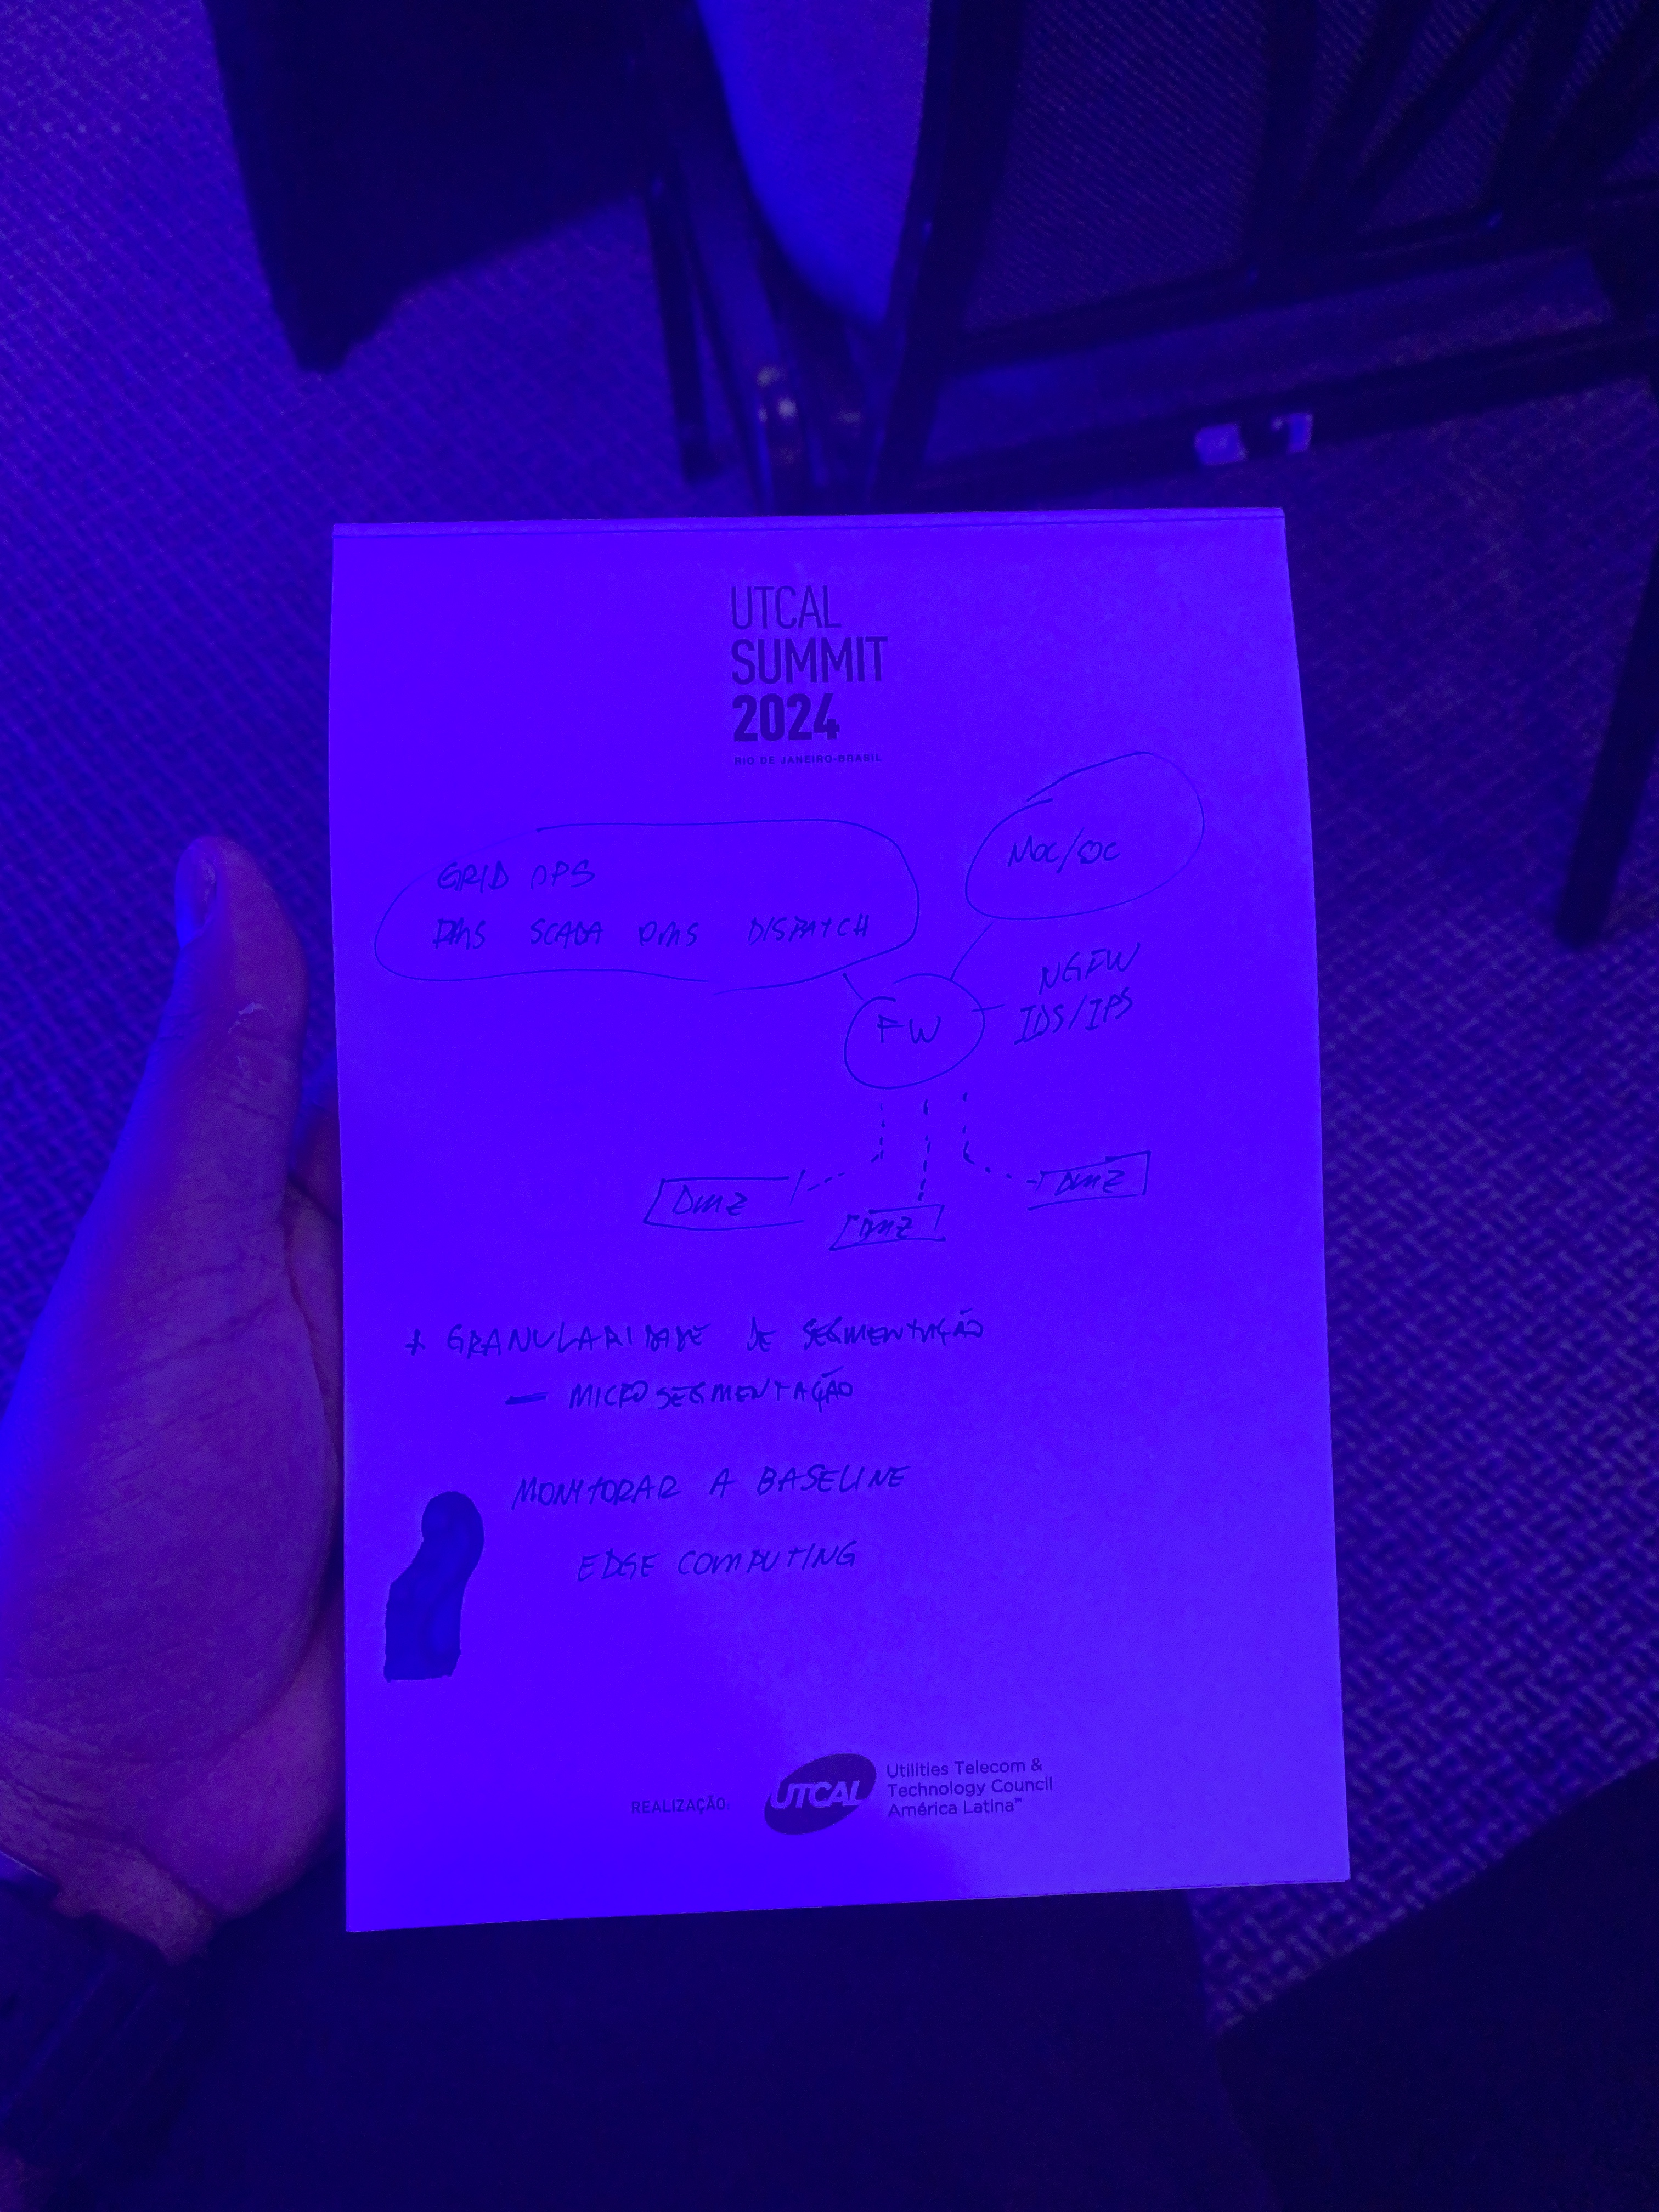 UTCAL
SUMMIT
2024
RIO DE JANEIRO-BRASIL
GRID OPS
DMS SCADA OMS DISPATCH
NOC/SOC
NGFW
IDS/IPS
FW
DMZ
DMZ
DMZ
+ GRANULARIDADE DE SEGMENTAÇÃO
— MICROSEGMENTAÇÃO
MONITORAR A BASELINE
EDGE COMPUTING
REALIZAÇÃO:
UTCAL
Utilities Telecom &
Technology Council
América Latina™